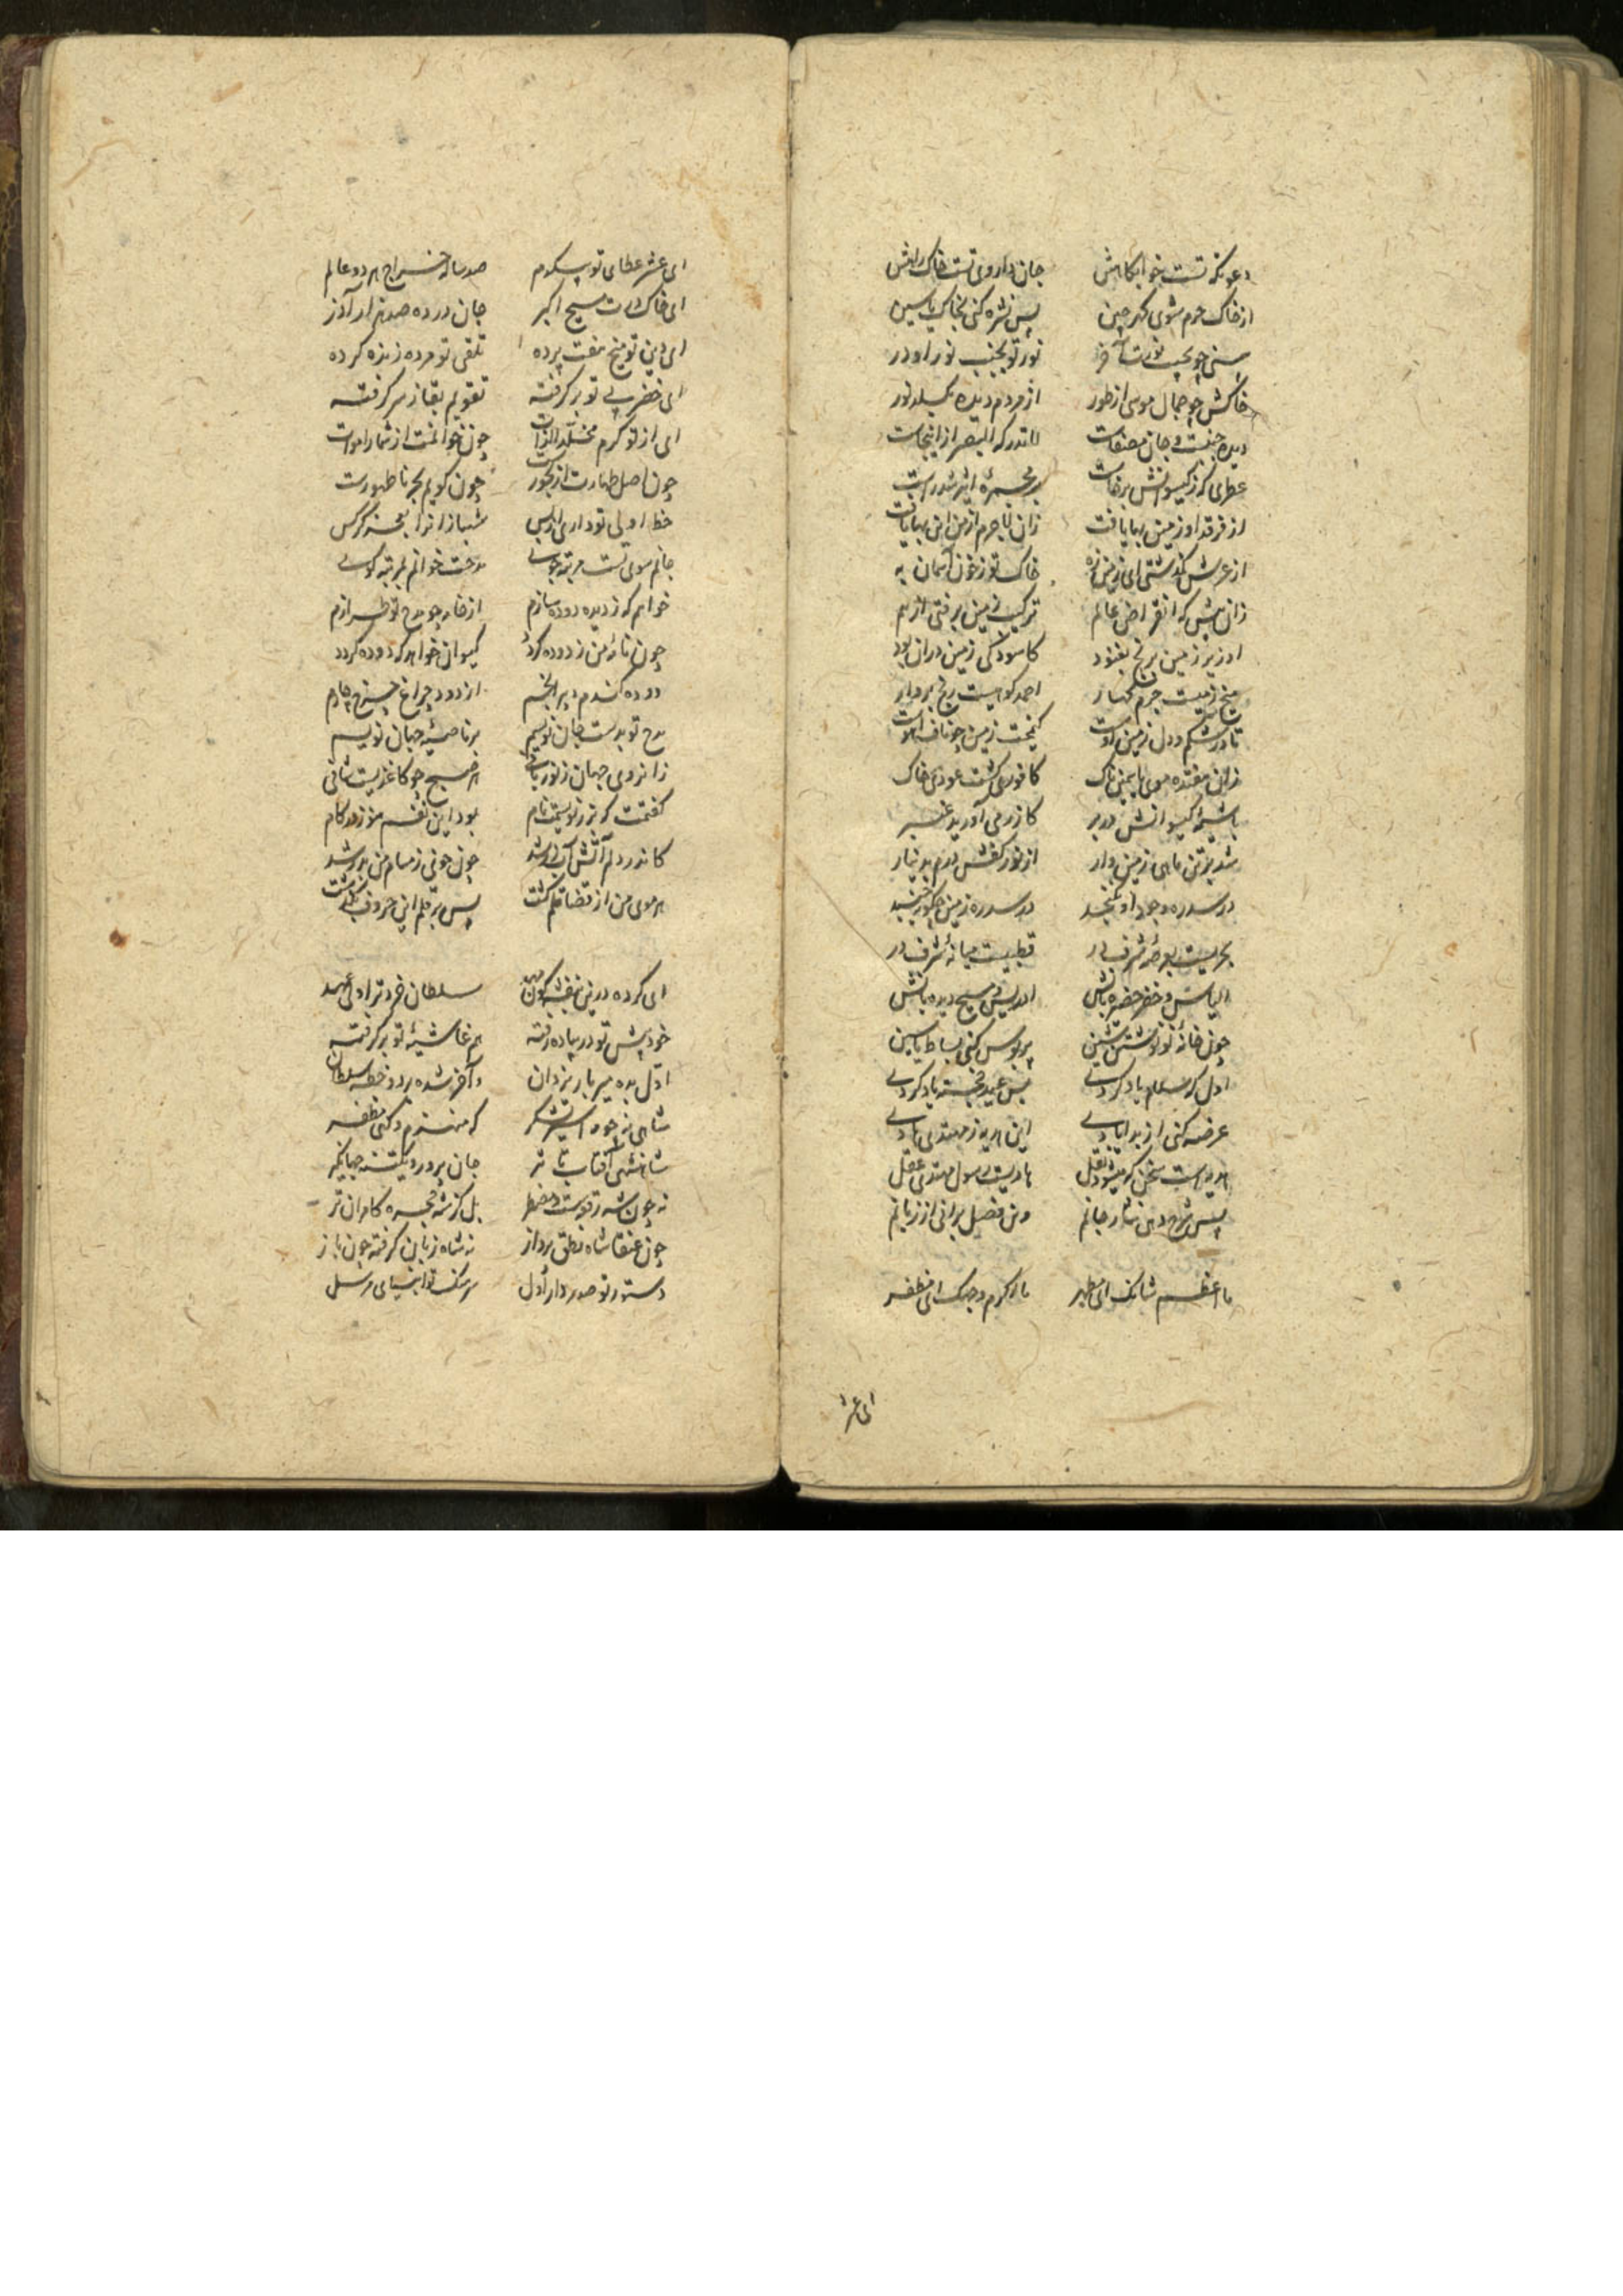 دعوتگه تست خوابگاهش جان داروی تست خاک راهش
از خاک حرم شوی گهرچین پس نشره کنی بخاک یاسین
نور تو بجنب نور او در
خاکش چو جمال موسی از طور از مردم دیده بگسلد نور
دیده جنب و جان مصفاست لا تدرکه البصر از اینجاست
عطری که ز گیسوانش برخاست بر مجمره اثیر شد راست
از فرقد او زمین بها یافت زان تا جرم ازمن این بها یافت
از عرش گذشتی ای زمین زه خاک تو ز خون آسمان به
زان پیش که انقراض عالم ترکیب زمین برفتی از هم
او زیر زمین برنج بغنود کاسودگی زمین دران بود
میخ زمیست جرم کهسار احمد کوهیست رنج بردار
تا در شکم و دل زمین اوست کیمخت زمین چو ناف آهوست
زانی هفتده موی یاسمین ناک کافوری گشت عودی خاک
با شیبه گیسوانش در بر کازرمی آورید عنبر
شد بر تن ماهی زمین دار از نور کفش درم بدینار
در سدره وجود او نگنجد در سدره زمین چگونه گنجد
بحریست بعرصه شرف در قطبیست میانه شرف در
الیاس و خضر حضیره بانش ادریس و مسیح دیده بانش
چون خانه نور گشتت تشین پر بوس کنی بساط یاسین
اول که سلام یاد کردی پس عید خجسته یاد کردی
عرضه کنی از بد ایادی این هدیه ز مهتدی هادی
هدیه است سخن که میشود نقل هادیست رسول مهتدی عقل
پس شرح دهی نثار جانم وین فصل برانی از زبانم
ما اعظم شانک ای مطهر ما اکرم وجهک ای مظفر
ای عشر
ای عشر عطای تو بیکدم صد ساله خراج هر دو عالم
ای خاک درت مسیح اکبر جان درده صد هزار آذر
ای دین تو میخ هفت پرده تلقین تو مرده زنده کرده
ای خضر پی تو برگرفته تقویم بقا ز سر گرفته
ای از تو کرم مخلد الذات چون خوانمت از شمار اموات
چون اصل طهارت از بحور است چون گویم بحر ناطهور است
خط اولی تو داری و بس شهباز ترا بجز کرکس
جانم سوی تست مرتبه جوی مدحت خوانم بمرتبه گوی
خواهم که ز دیده دوده سازم از خامه چو مدح تو طرازم
چون نامه من ز دوده گردد کیوان خواهد که دوده گردد
دوده کندم دبیر انجم از دود چراغ چرخ چارم
مدح تو بدست جان نویسم بر ناصیه جهان نویسم
زانروی جهان ز نور یابی هر صبح چو کاغذیست شامی
گفتمت که نز زبستمت نام بود این نفسم هنوز در کام
کاندر دلم آتش آب در شد چون خوی ز مسام من بدر شد
هر موی من از قضا قلم گشت پس بر قلم این حروف بگذشت
ای کرده درین بنفشه گون مهد سلطان خرد ترا ولی عهد
خود پیش تو در پیاده رفته هم غاشیه تو برگرفته
اول بده میر بار یزدان وآخر شده مرد و خطه سلطان
شاهی نه چو میر تیشکر که منهزم و گهی مظفر
شاهنشهی آفتاب تاثیر جان پرور و یکتنه جهانگیر
نه چون شه رقعه است مضطر بل کز شه مجره کامران تر
چون عنقا شاه نطق پرداز نه شاه زبان گرفته چون باز
دستور تو صدر دار اول سرهنگ تو انبیای مرسل